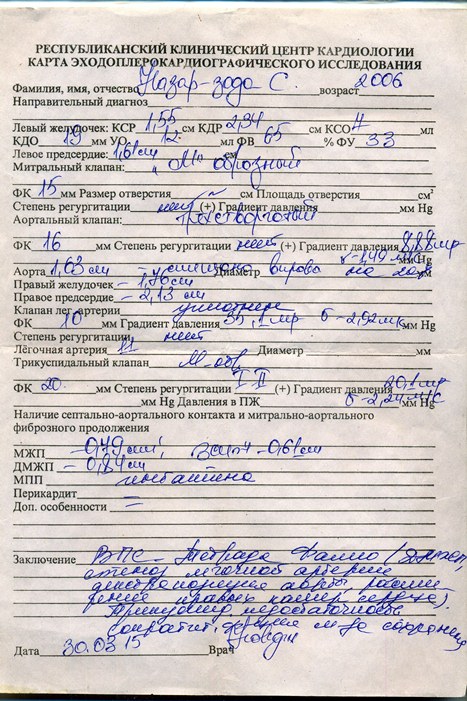 РЕСПУБЛИКАНСКИЙ КЛИНИЧЕСКИЙ ЦЕНТР КАРДИОЛОГИИ
КАРТА ЭХОДОПЛЕРОКАРДИОГРАФИЧЕСКОГО ИССЛЕДОВАНИЯ
Фамилия, имя, отчество Назар-зода С. возраст 2006
Направительный диагноз
Левый желудочек: КСР 1,55 см КДР 2,34 см КСО 7 мл
КДО 19 мм УО 12 мл ФВ 65 % ФУ 33
Левое предсердие: 1,61 см см
Митральный клапан: "М" образный
ФК 15 мм Размер отверстия см Площадь отверстия см²
Степень регургитации нет (+) Градиент давления мм Hg
Аортальный клапан: трёхстворчатый
ФК 16 мм Степень регургитации нет (+) Градиент давления 8,88 мм Hg
Аорта 1,63 см Диаметр мм
Правый желудочек – 1,76 см
Правое предсердие – 2,13 см
Клапан лег. артерии
ФК 10 мм Градиент давления мм Hg
Степень регургитации нет
Лёгочная артерия 11 Диаметр мм
Трикуспидальный клапан М-обр
ФК 20 мм Степень регургитации I-II (+) Градиент давления 20,1
мм Hg Давления в ПЖ мм Hg
Наличие септально-аортального контакта и митрально-аортального
фиброзного продолжения
МЖП – 0,49 см,
ДМЖП – 0,84 см
МПП
Перикардит –
Доп. особенности –
Заключение ВПС – Тетрада Фалло
стеноз легочной артерии
декстропозиция аорты
правых камер сердца).
недостаточность
Дата 30.03 15 Врач